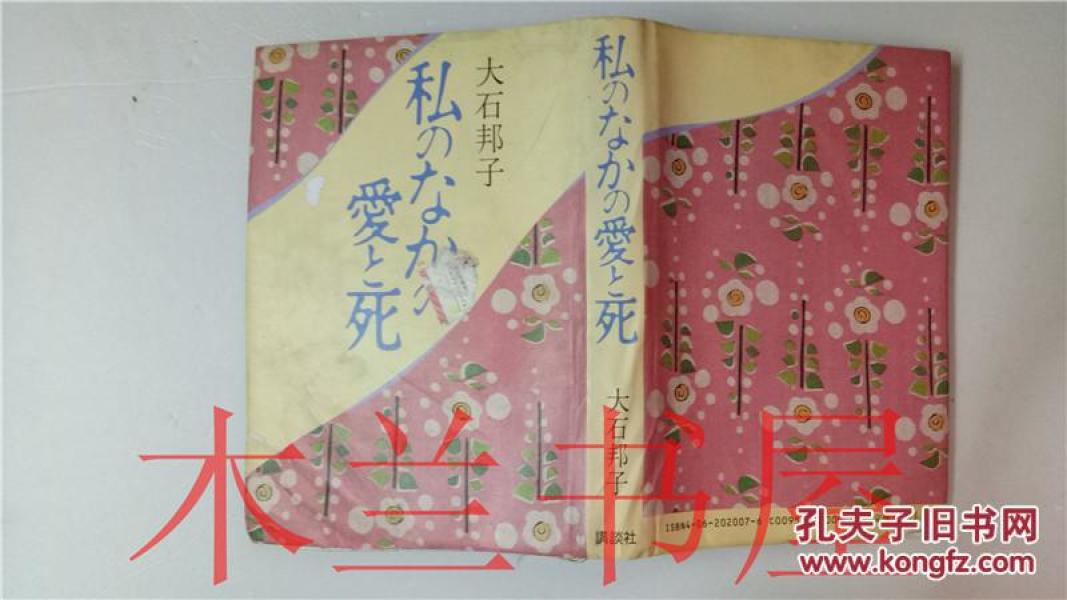 大石邦子
私のなかの
愛と死
私のなかの愛と死
大石邦子
講談社
ISBN4-06-202007-6 C009
木兰书屋
孔夫子旧书网
www.kongfz.com